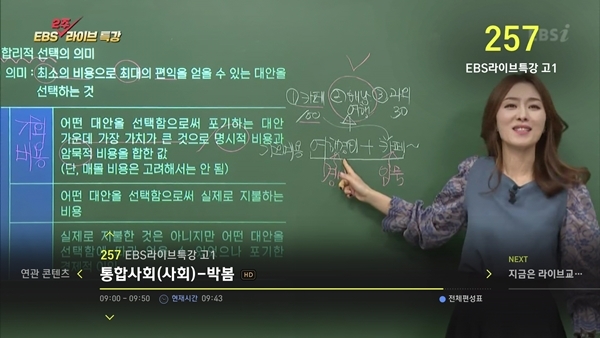 2주
EBS 라이브 특강
EBSi
257
EBS라이브특강 고1
합리적 선택의 의미
의미 : 최소의 비용으로 최대의 편익을 얻을 수 있는 대안을
선택하는 것
어떤 대안을 선택함으로써 포기하는 대안
가운데 가장 가치가 큰 것으로 명시적 비용과
암묵적 비용을 합한 값
(단, 매몰 비용은 고려해서는 안 됨)
어떤 대안을 선택함으로써 실제로 지불하는
비용
실제로 지불한 것은 아니지만 어떤 대안을
① 카페 ② 해남 ③ 과외
100 30
257 EBS라이브특강 고1
연관 콘텐츠
통합사회(사회)-박봄 HD
09:00 - 09:50 현재시간 09:43
전체편성표
NEXT
지금은 라이브교…